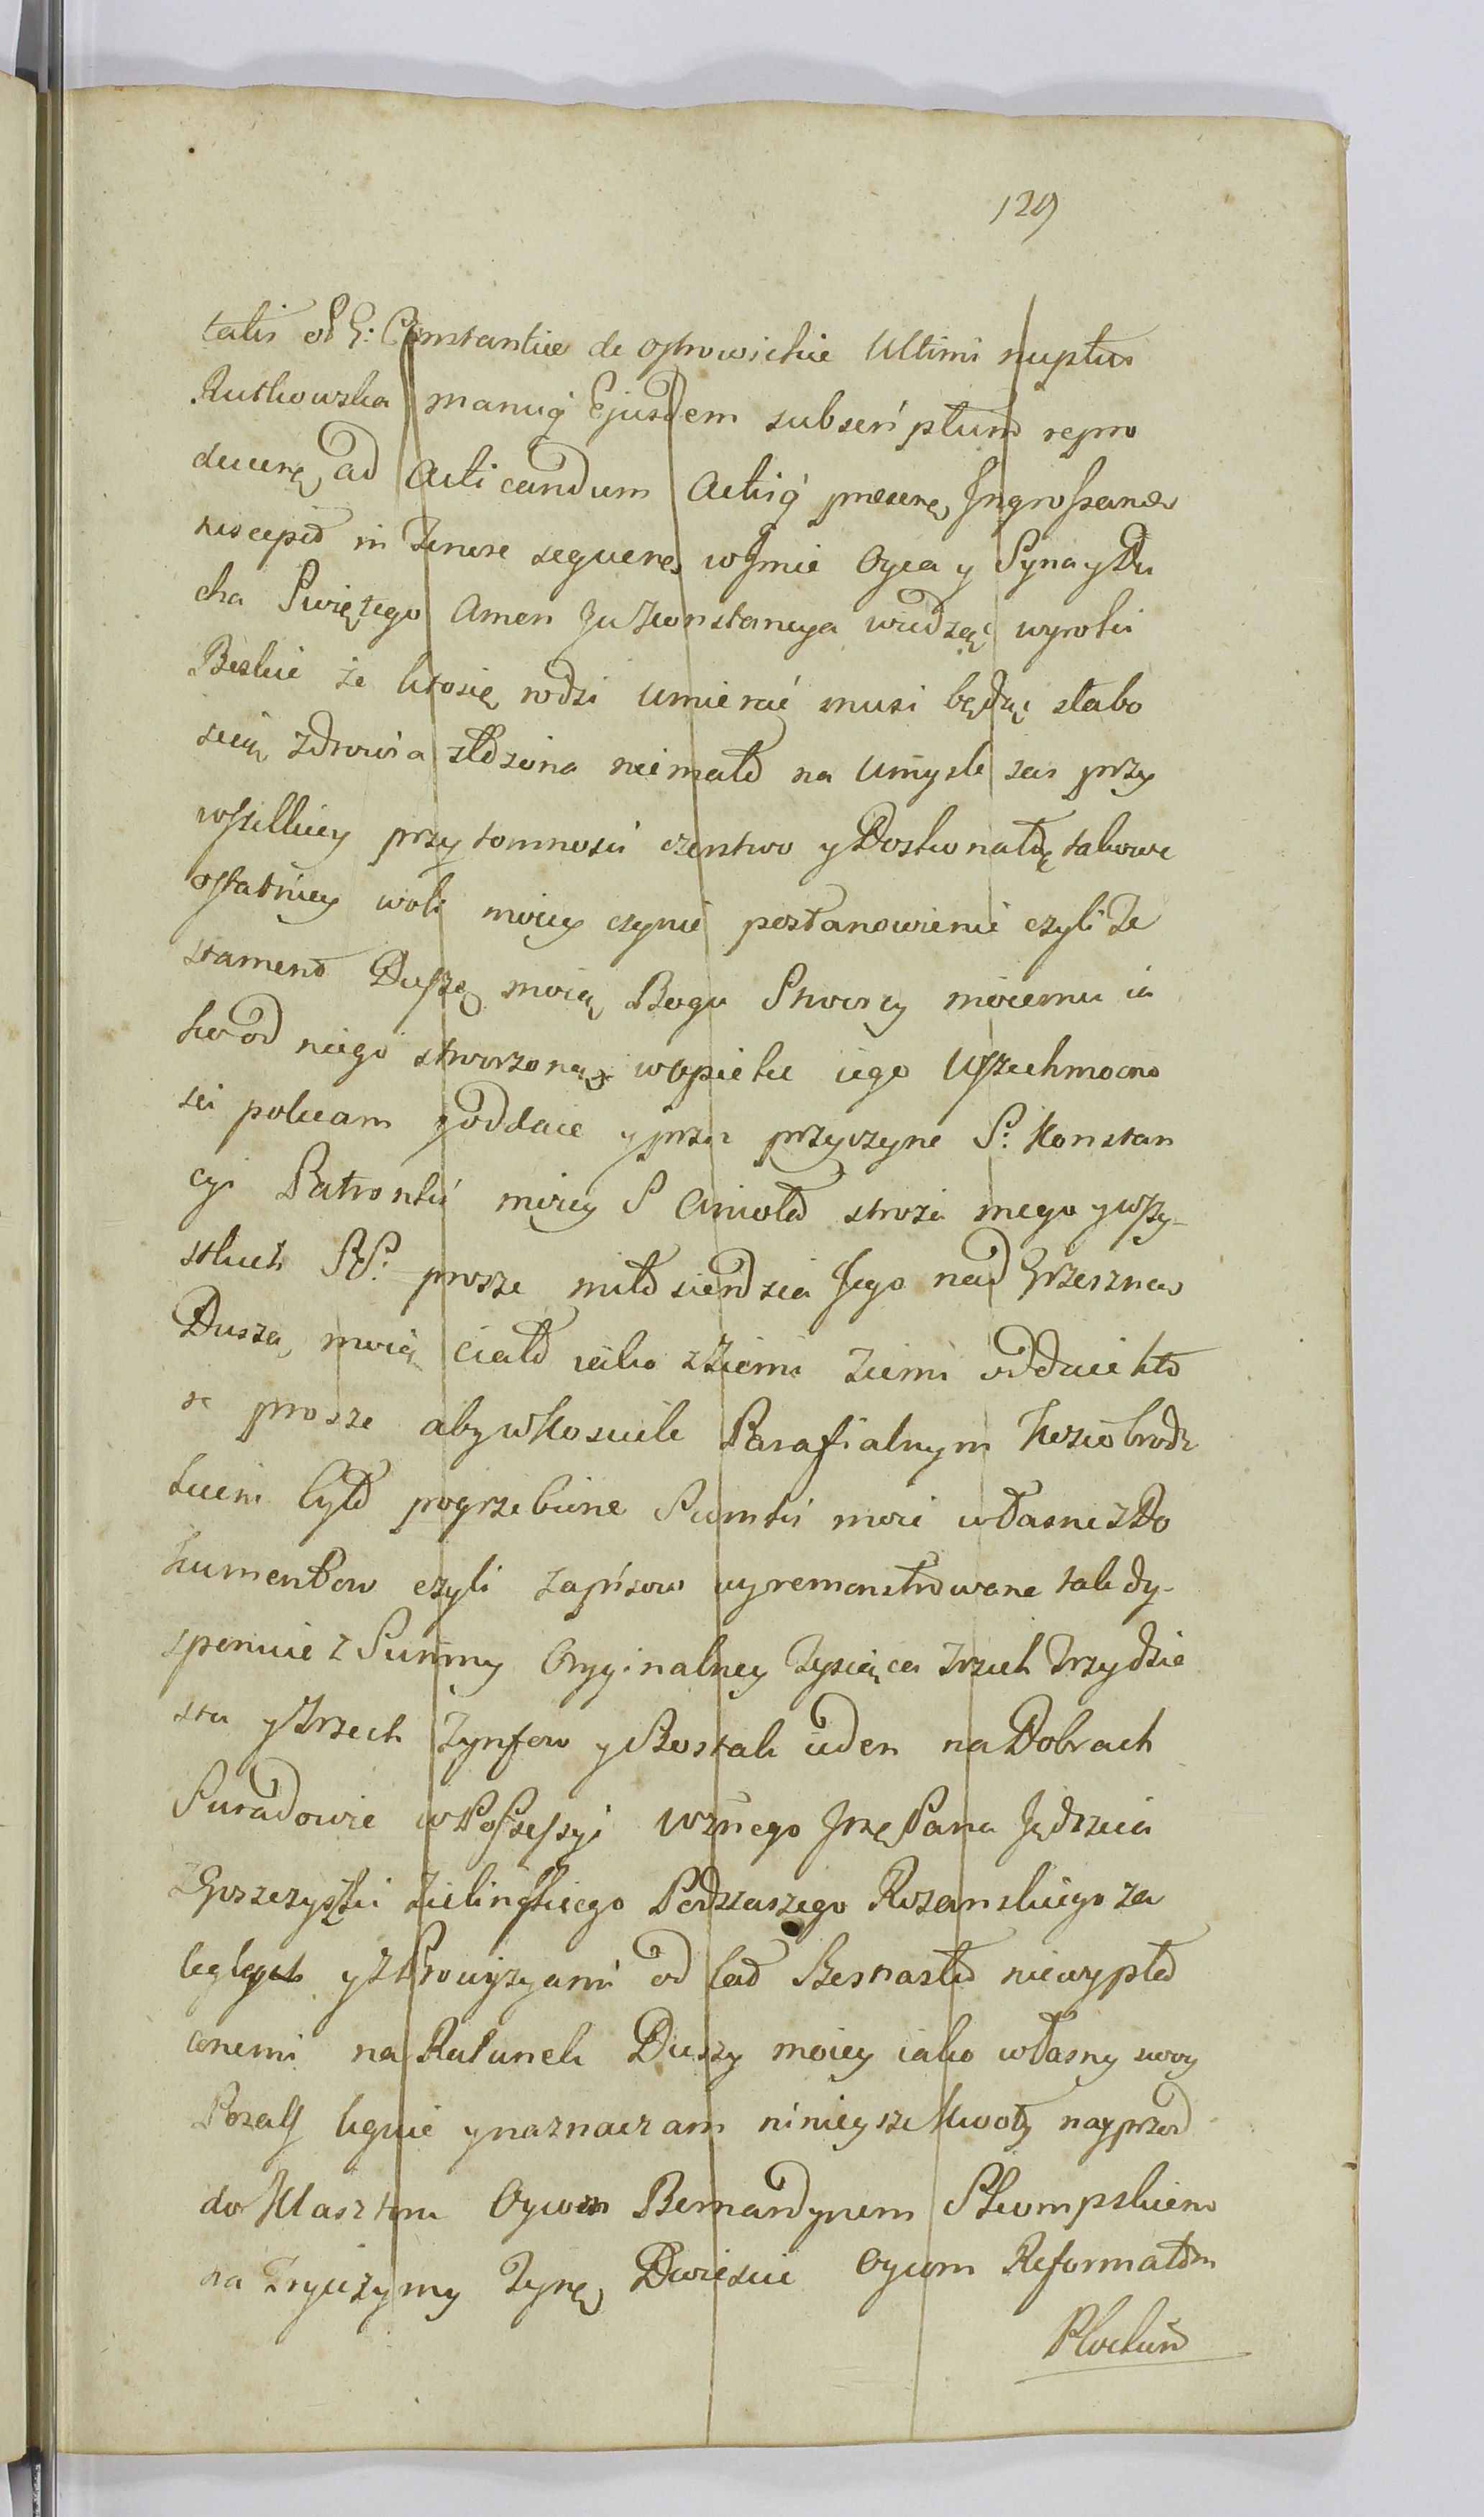 129
talis et G: Constantiæ de Ostrowickie Ultimi nuptus
Rutkowska manuq Ejusdem subscriptum repro
ducens, ad Acticandum Actisq præsens, Ingrossand
suscepit in Tenore sequens, w Jmie Oyca y Syna y Du
cha Swiętego Amen Ja Konstancya wiedząc wyroki
Boskie że kto się rodzi umierać musi będąc słabo
scią zdrowia złożona niemało na Umysle zas przy
wszelkiey przytomnosci czerstwo y Doskonałą takowe
ostatniey woli moiey czynie postanowienie czyli Te
stament Duszę moię Bogu Stworcy moiemu ia
ko od niego stworzoną w opieke iego Wszechmocno
sci polecam y oddaie y przez przyczyne S: Konstan
cyi Patronki moiey S Anioła stroża mego y wszy-
stkich SS: prosze miłosierdzia Jego nad Grzeszną
Duszą moią Ciało iako z Ziemi Ziemi oddaie kto
re prosze aby w Kosciele Parafialnym Koziobrodz
kiem było pogrzebione Sumki moie własne z Do
kumentow czyli zapisow wyremonstrowane tak dy-
sponuie z Summy Oryginalney Tysiąca Trzech Trzydzie
stu y Trzech Tynfow y Szostak ieden na Dobrach
Suradowie w Possessyi Wżnego Jmę Pana Jędrzeia
z Gorzezyszki Zielinskiego Podczaszego Rozanskiego za
ległych y z Prowizyami od lat Szesnastu niewypła
conemi na Ratunek Duszy moiey iako własny swoy
Posag leguie y naznaczam ninieysze kwoty nayprzod
do Klasztoru Oycom Bernardynom Skompskiem
na Tryczymy Tynf Dwiescie Oycom Reformatom
Plockim